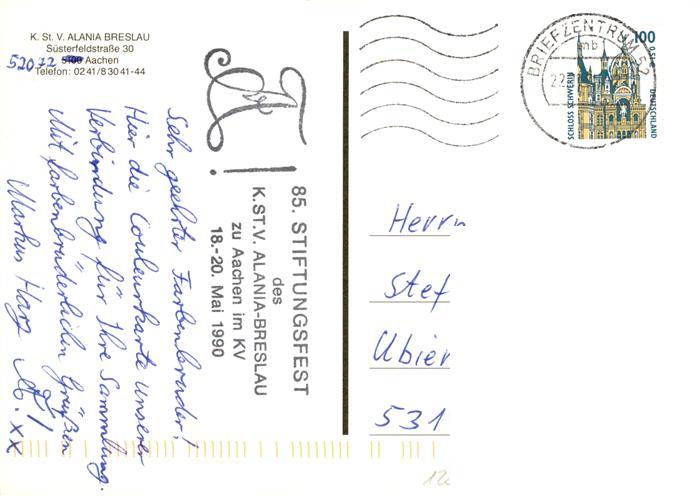 K. St. V. ALANIA BRESLAU
Süsterfeldstraße 30
52072 5100 Aachen
Telefon: 02 41/8 30 41-44
Sehr geehrter Farbenbruder!
Hier die Couleurkarte unserer
Verbindung für Ihre Sammlung.
Mit farbenbrüderlichen Grüßen
Markus Harz
xx
85. STIFTUNGSFEST
des
K.ST.V. ALANIA-BRESLAU
zu Aachen im KV
18.-20. Mai 1990
BRIEFZENTRUM 52
mb
100
SCHLOSS SCHWERIN
DEUTSCHLAND
Herrn
Stef
Ubier
531